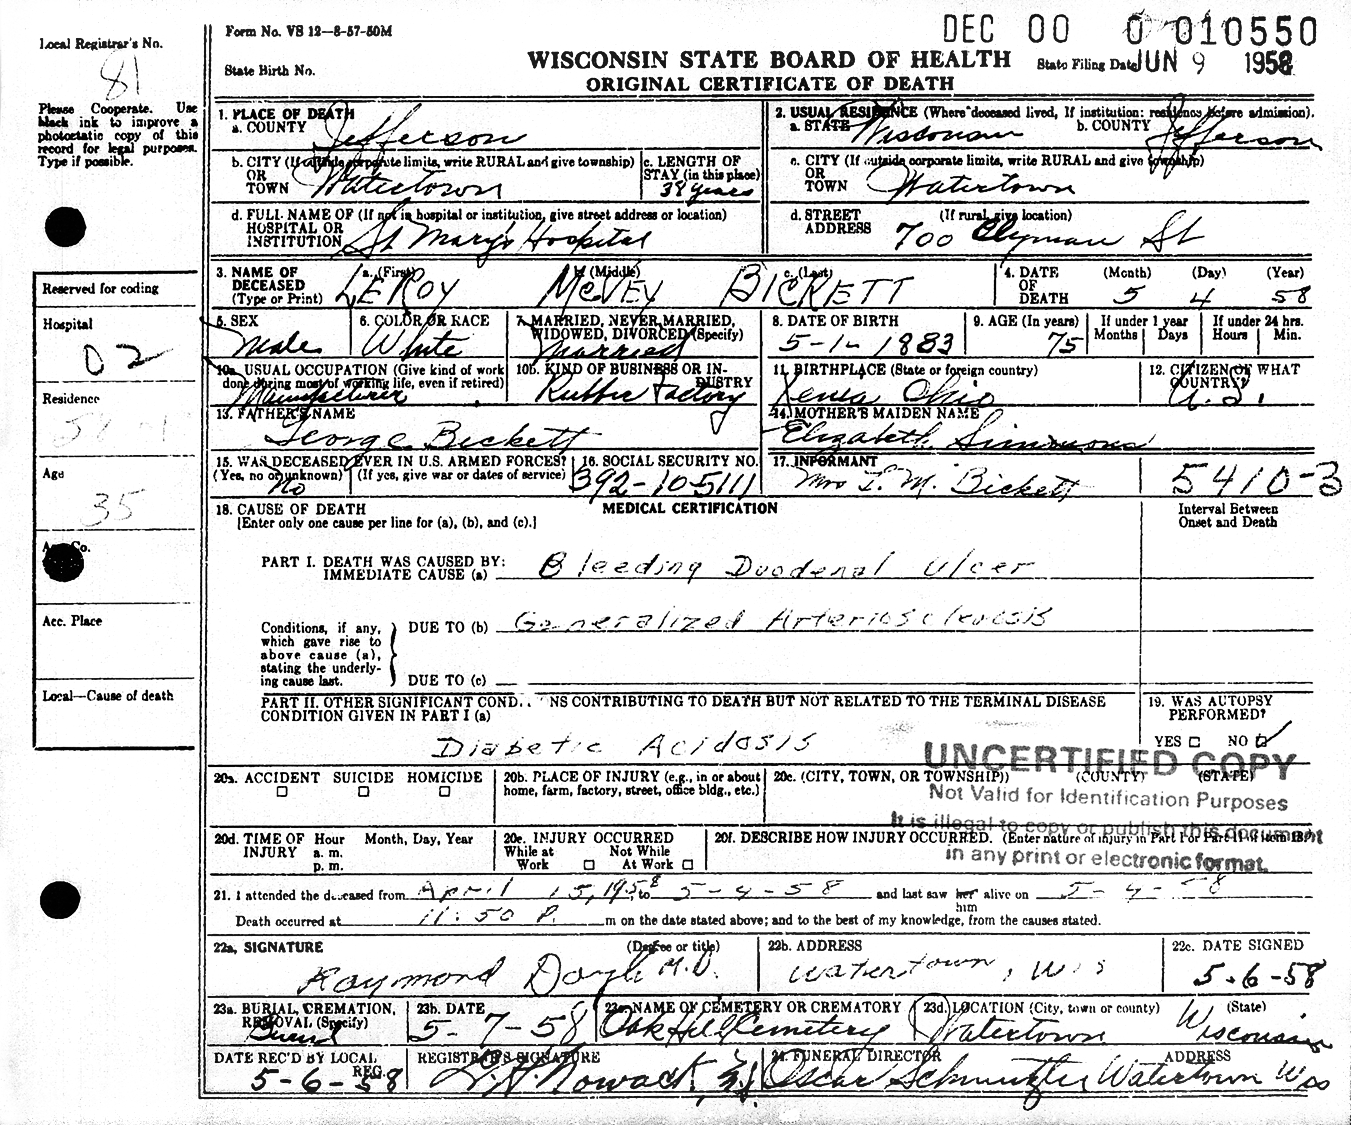 Form No. VS 12—8-57-50M
DEC 00 0 010550
Local Registrar's No.
81
State Birth No.
WISCONSIN STATE BOARD OF HEALTH
ORIGINAL CERTIFICATE OF DEATH
State Filing Date JUN 9 1958
Please Cooperate. Use
black ink to improve a
photostatic copy of this
record for legal purposes.
Type if possible.
1. PLACE OF DEATH
a. COUNTY Jefferson
2. USUAL RESIDENCE (Where deceased lived, If institution: residence before admission).
a. STATE Wisconsin b. COUNTY Jefferson
b. CITY (If outside corporate limits, write RURAL and give township)
OR
TOWN Watertown
c. LENGTH OF
STAY (in this place)
38 years
c. CITY (If outside corporate limits, write RURAL and give township)
OR
TOWN Watertown
d. FULL NAME OF (If not in hospital or institution, give street address or location)
HOSPITAL OR
INSTITUTION St Mary's Hospital
d. STREET (If rural, give location)
ADDRESS 700 Clyman St
3. NAME OF
DECEASED
(Type or Print)
a. (First) b. (Middle) c. (Last)
LEROY MCVEY BICKETT
4. DATE
OF
DEATH
(Month) (Day) (Year)
5 4 58
Reserved for coding
Hospital
02
Residence
Age
35
Acc. Place
Local—Cause of death
5. SEX
Male
6. COLOR OR RACE
White
7. MARRIED, NEVER MARRIED,
WIDOWED, DIVORCED (Specify)
Married
8. DATE OF BIRTH
1883
9. AGE (In years)
75
If under 1 year
Months Days
If under 24 hrs.
Hours Min.
10a. USUAL OCCUPATION (Give kind of work
done during most of working life, even if retired)
Manufacturer
10b. KIND OF BUSINESS OR IN-
DUSTRY
Rubber Factory
11. BIRTHPLACE (State or foreign country)
Xenia Ohio
12. CITIZEN OF WHAT
COUNTRY?
U.S.
13. FATHER'S NAME
George Bickett
14. MOTHER'S MAIDEN NAME
Elizabeth Simmons
15. WAS DECEASED EVER IN U.S. ARMED FORCES?
(Yes, no or unknown) (If yes, give war or dates of service)
No
16. SOCIAL SECURITY NO.
392-10-5111
17. INFORMANT
Mrs L. M. Bickett
5410-3
18. CAUSE OF DEATH
[Enter only one cause per line for (a), (b), and (c).]
MEDICAL CERTIFICATION
Interval Between
Onset and Death
PART I. DEATH WAS CAUSED BY:
IMMEDIATE CAUSE (a) Bleeding Duodenal Ulcer
Conditions, if any,
which gave rise to
above cause (a),
stating the underly-
ing cause last.
DUE TO (b) Generalized Arteriosclerosis
DUE TO (c)
PART II. OTHER SIGNIFICANT COND NS CONTRIBUTING TO DEATH BUT NOT RELATED TO THE TERMINAL DISEASE
CONDITION GIVEN IN PART I (a)
Diabetic Acidosis
19. WAS AUTOPSY
PERFORMED?
YES NO
UNCERTIFIED COPY
Not Valid for Identification Purposes
It is illegal to copy or publish this document
in any print or electronic format.
20a. ACCIDENT SUICIDE HOMICIDE
20b. PLACE OF INJURY (e.g., in or about
home, farm, factory, street, office bldg., etc.)
20c. (CITY, TOWN, OR TOWNSHIP) (COUNTY) (STATE)
20d. TIME OF Hour Month, Day, Year
INJURY a. m.
p. m.
20e. INJURY OCCURRED
While at Not While
Work At Work
20f. DESCRIBE HOW INJURY OCCURRED. (Enter nature of injury in Part I or Part II of item 18)
21. I attended the deceased from April 15, 1958 to 5-4-58 and last saw her alive on 5-4-58
him
Death occurred at 11:50 P. m on the date stated above; and to the best of my knowledge, from the causes stated.
22a. SIGNATURE (Degree or title)
Raymond Doyle M.D.
22b. ADDRESS
Watertown, Wis
22c. DATE SIGNED
5-6-58
23a. BURIAL, CREMATION,
REMOVAL (Specify)
Burial
23b. DATE
5-7-58
23c. NAME OF CEMETERY OR CREMATORY
Oak Hill Cemetery
23d. LOCATION (City, town or county) (State)
Watertown Wisconsin
DATE REC'D BY LOCAL
REG.
5-6-58
REGISTRAR'S SIGNATURE
Nowack
24. FUNERAL DIRECTOR ADDRESS
Oscar Schmutzler Watertown Wis